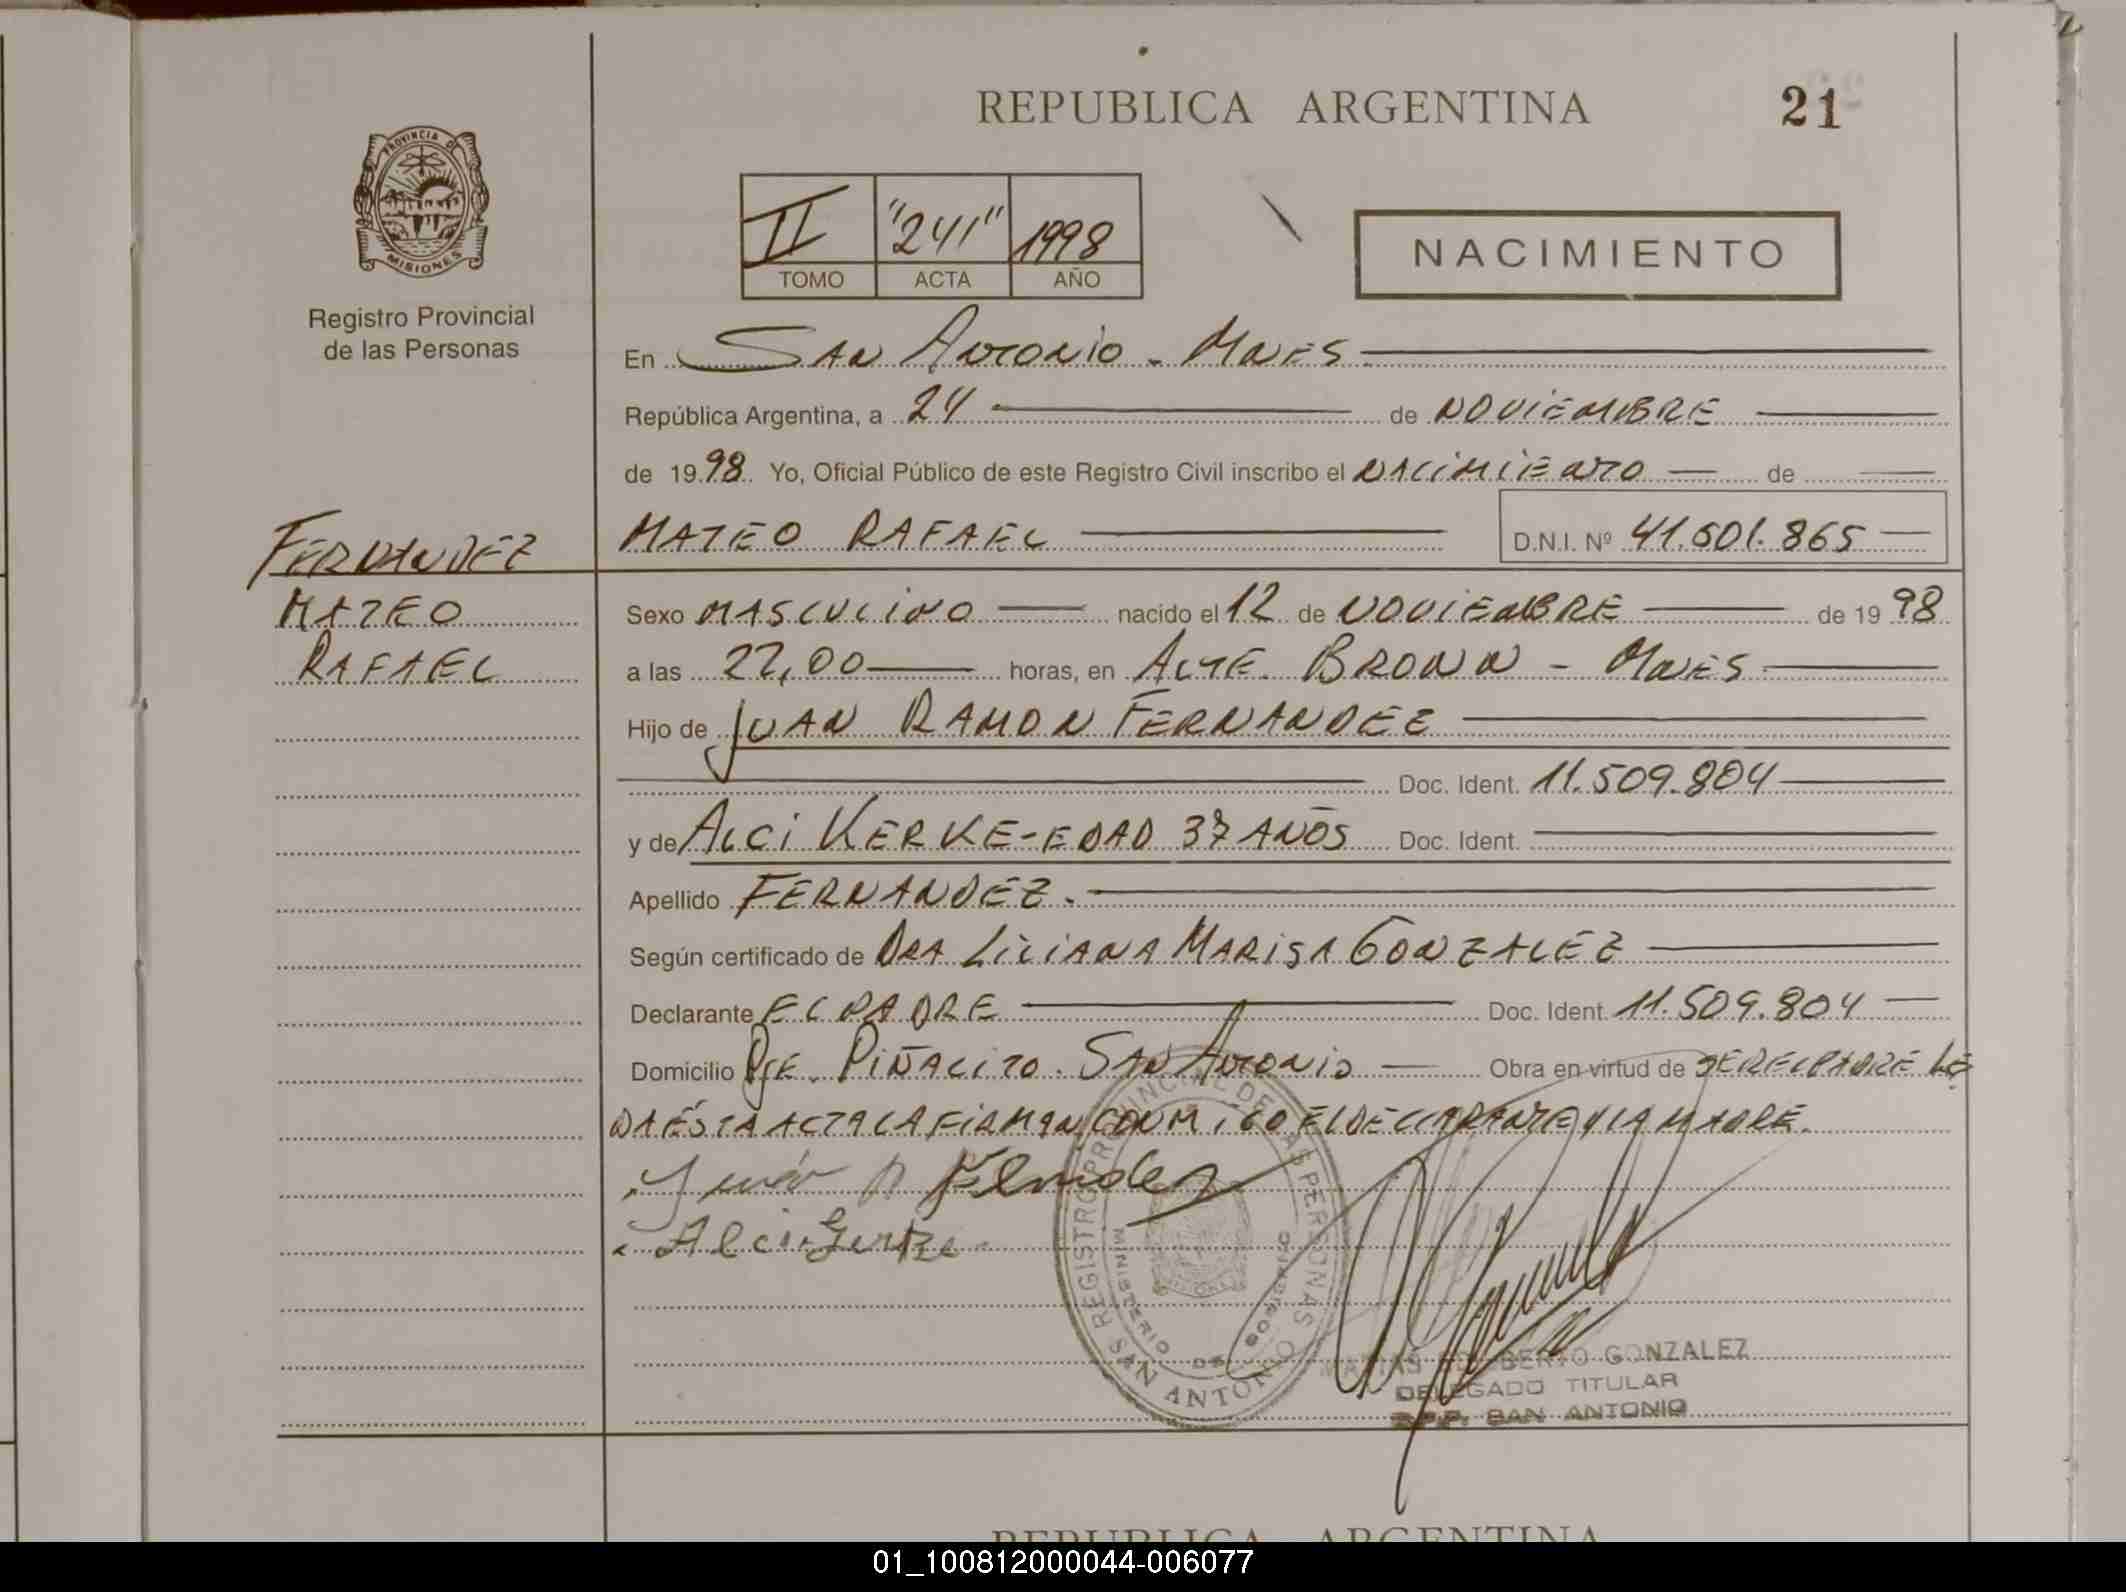 REPUBLICA ARGENTINA
21
PROVINCIA DE
MISIONES
Registro Provincial
de las Personas
II "241" 1998
TOMO ACTA AÑO
NACIMIENTO
En San Antonio - Mnes
República Argentina, a 24 de NOVIEMBRE
de 19 98 Yo, Oficial Público de este Registro Civil inscribo el NACIMIENTO de
FERNANDEZ
MATEO RAFAEL D.N.I. Nº 41.501.865
MATEO
RAFAEL
Sexo MASCULINO nacido el 12 de NOVIEMBRE de 19 98
a las 22,00 horas, en ALTE. BROWN - MNES
Hijo de JUAN RAMON FERNANDEZ
Doc. Ident. 11.509.804
y de ALCI KERKE - EDAD 37 AÑOS Doc. Ident.
Apellido FERNANDEZ.
Según certificado de DRA LILIANA MARISA GONZALEZ
Declarante EL PADRE Doc. Ident. 11.509.804
Domicilio PJE. PIÑALITO. SAN ANTONIO Obra en virtud de SER EL PADRE LE
DA ÉSTA ACTA LA FIRMAN CONMIGO EL DECLARANTE Y LA MADRE.
Alci
REGISTRO PROVINCIAL DE LAS PERSONAS
MINISTERIO DE GOBIERNO
SAN ANTONIO
GONZALEZ
DELEGADO TITULAR
SAN ANTONIO
REPUBLICA ARGENTINA
01_100812000044-006077